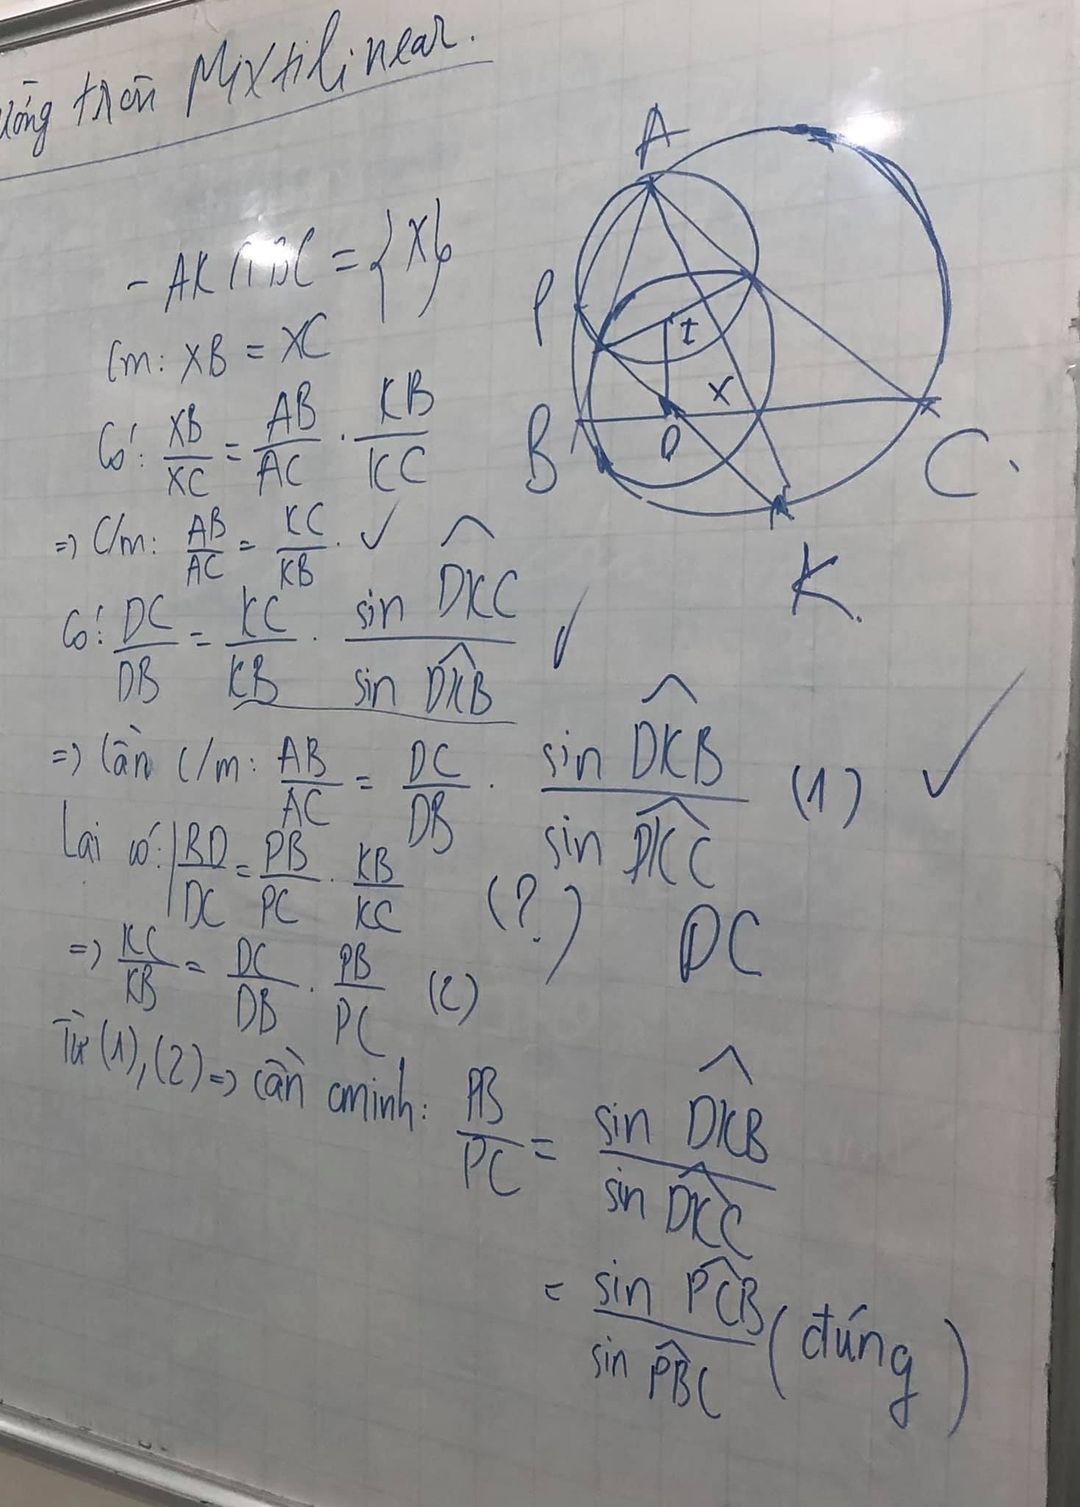 ường tròn Mixtilinear.
- AK ∩ BC = {X}
Cm: XB = XC
Có: XB/XC = AB/AC . KB/KC
=> C/m: AB/AC = KC/KB . ✓
Có: DC/DB = KC/KB . sin DKC/sin DKB ✓
=> Cần c/m: AB/AC = DC/DB . sin DKB/sin DKC (1) ✓
Lại có: BD/DC = PB/PC . KB/KC (?) DC
=> KC/KB = DC/DB . PB/PC (2)
Từ (1), (2) => cần cminh: PB/PC = sin DKB/sin DKC
= sin PCB/sin PBC (đúng)
A
P
I
X
B
D
C
K.